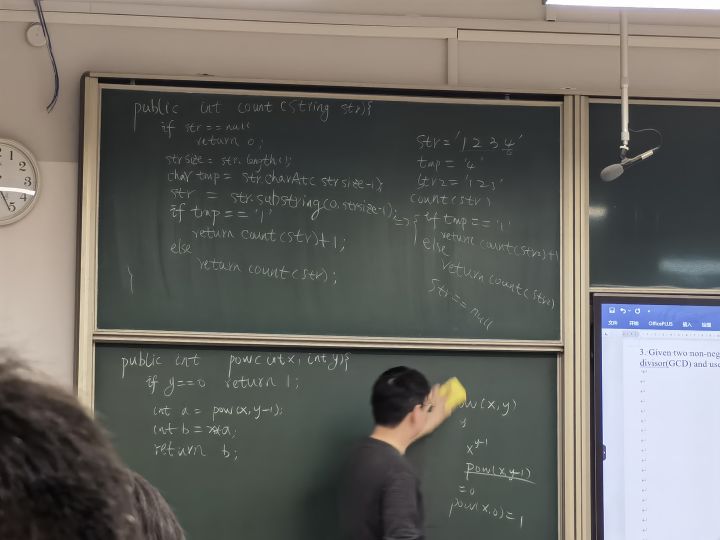 public int count (String str){
if str == null
return 0;
strsize = str.length();
char tmp = str.charAt( strsize-1);
str = str.substring(0, strsize-1);
if tmp == '1'
return count(str)+1;
else
return count(str);
}
str = '1 2 3 4'
tmp = '4'
str2 = '1 2 3'
count(str)
=> { if tmp == '1'
return count(str2)+1
else
return count(str2)
str == null
public int pow(int x, int y){
if y==0 return 1;
int a = pow(x, y-1);
int b = x*a;
return b;
pow(x, y)
y
x^y-1
pow(x, y-1)
=0
pow(x,0)=1
1
2
3
4
5
文件 开始 OfficePLUS 插入 绘图
3. Given two non-neg
divisor(GCD) and use